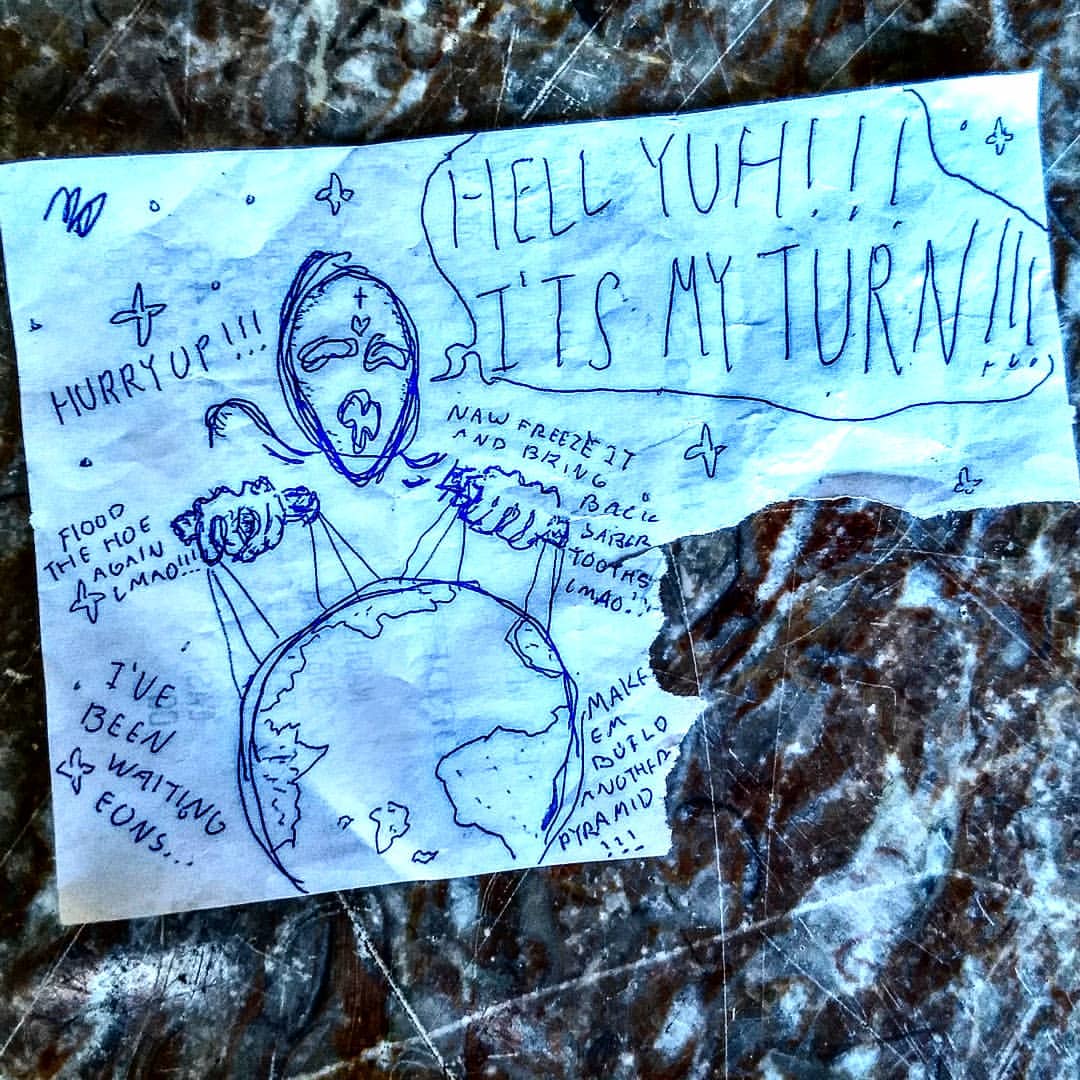 HELL YUH!!!
I'TS MY TURN!!!
HURRY UP!!!
NAW FREEZE IT
AND BRING
BACK
SABER
TOOTHS
LMAO!!!
FLOOD
THE HOE
AGAIN
LMAO!!!
I'VE
BEEN
WAITING
EONS...
MAKE
EM
BUILD
ANOTHER
PYRAMID
!!!